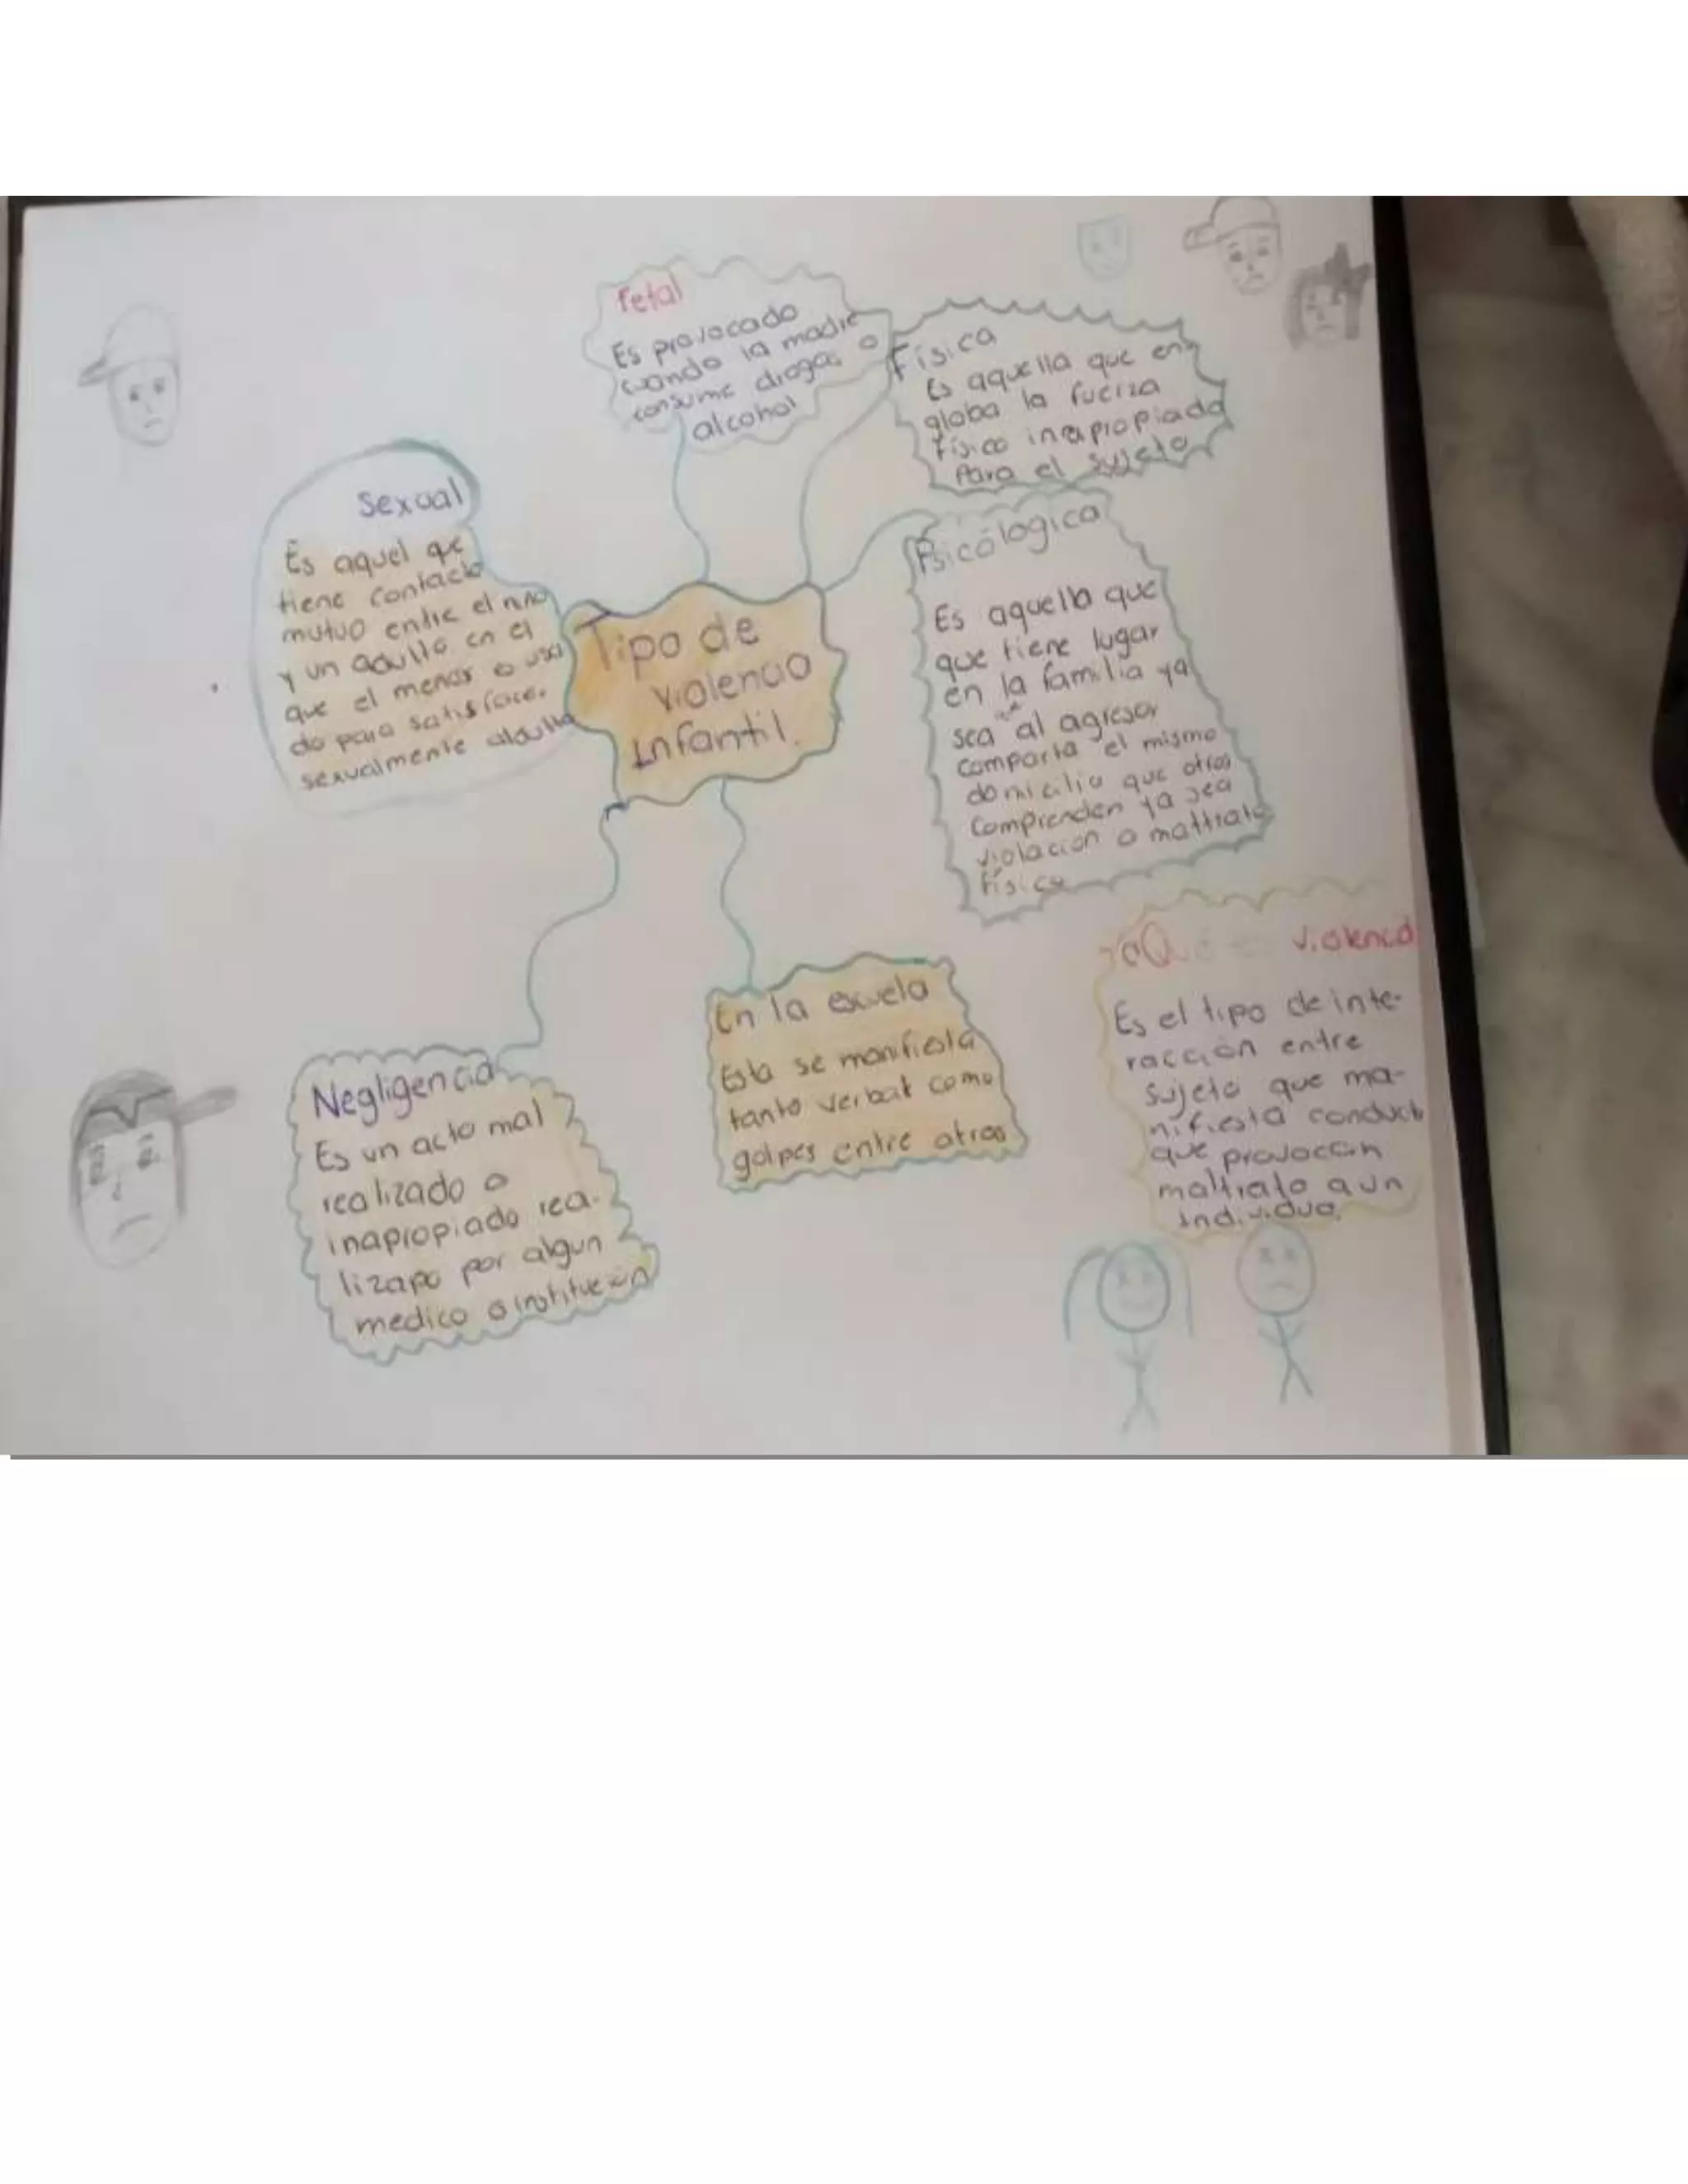 Fetal
Es provocado
cuando la madre
consume drogas o
alcohol
Física
Es aquella que en-
globa la fuerza
físico inapropiada
Para el sujeto
Sexual
Es aquel que
tiene contacto
mutuo entre el niño
y un adulto en el
que el menor o usa
do para satisface.
sexualmente aladulto
Tipo de
violencia
infantil.
Psicólogica
Es aquella que
que tiene lugar
en la familia ya
sea que al agresor
comporta el mismo
domicilio que otros
comprenden ya sea
violacion o maltrato
físico
¿Qué es violencia
Es el tipo de inte-
racción entre
sujeto que ma-
nifiesta conduct
que provoccan
maltrato a un
individuo.
En la escuela
Esta se manifiesta
tanto verbal como
golpes entre otros
Negligencia
Es un acto mal
realizado o
inapropiado rea-
lizapo por algun
medico o institución